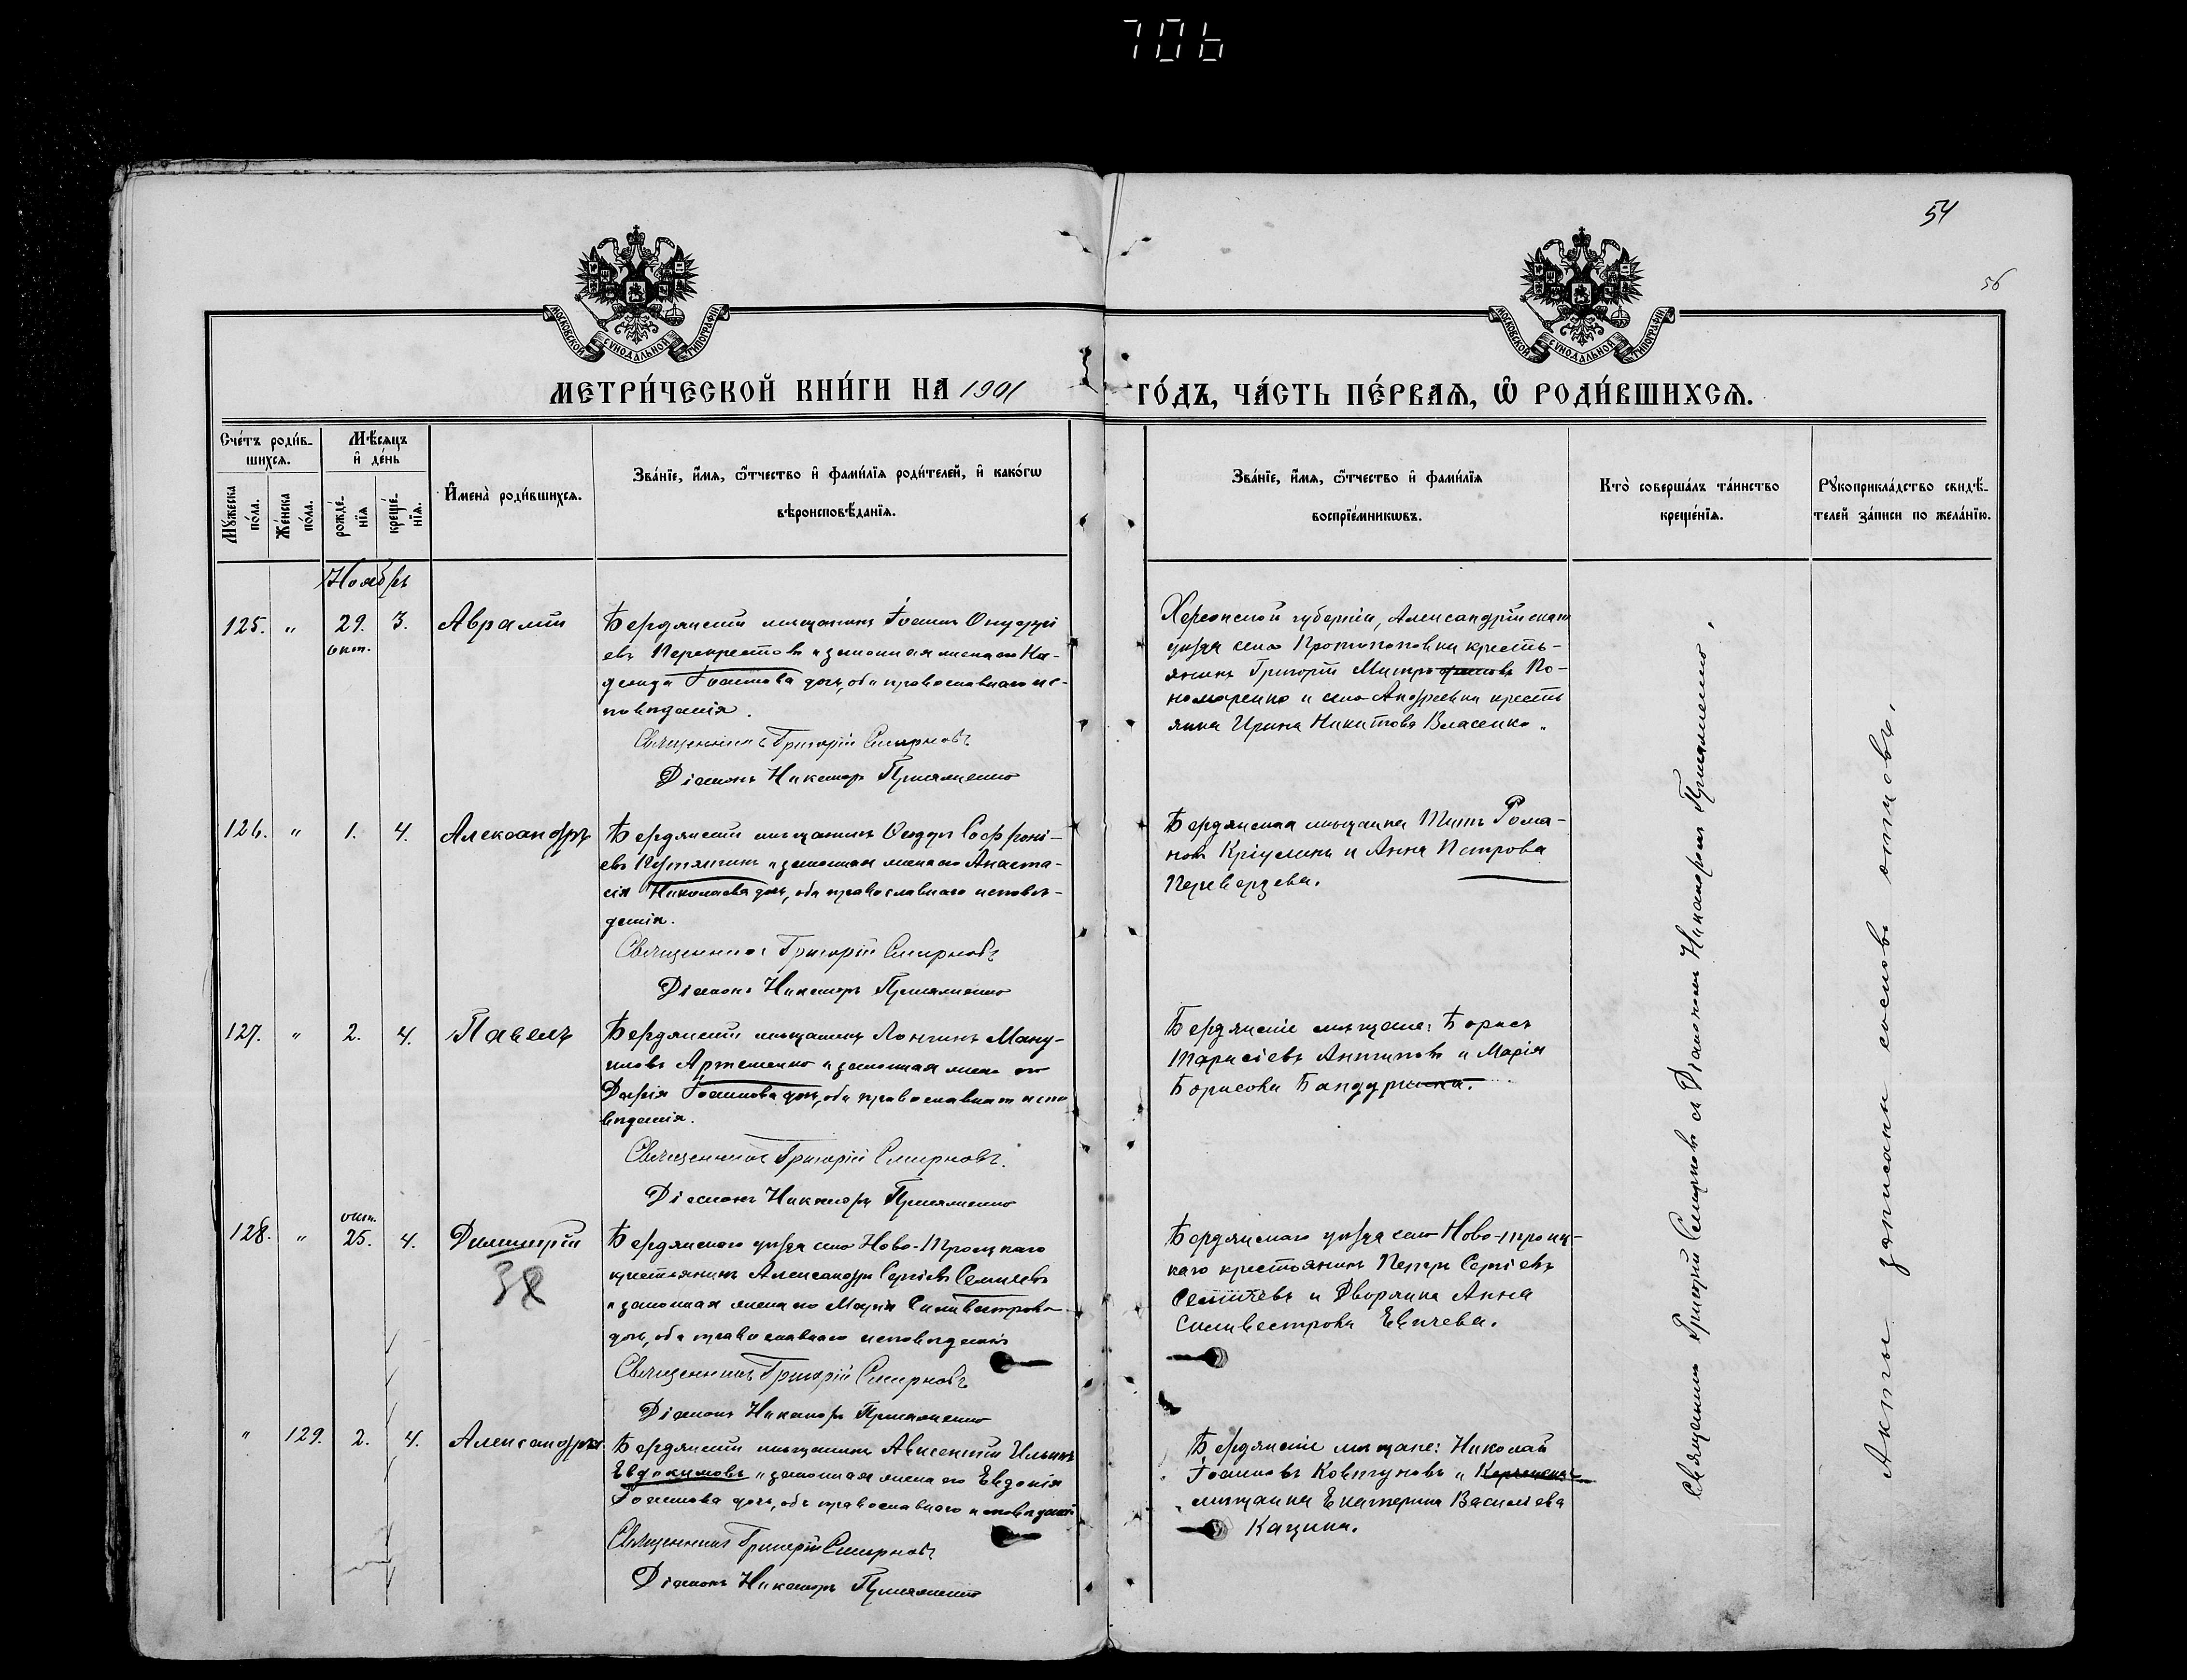 706
54
56
МОСКОВСКОЙ СѴНОДАЛЬНОЙ ТИПОГРАФІИ
МОСКОВСКОЙ СѴНОДАЛЬНОЙ ТИПОГРАФІИ
МЕТРИ́ЧЕСКОЙ КНИ́ГИ НА 1901
ГО́ДЪ, ЧА́СТЬ ПЕ́РВАЯ, Ѡ РОДИ́ВШИХСѦ.
Сче́тъ роди́в-
шихся.
Мѣ́сяцъ
и҆ де́нь
Мꙋ́жеска
по́ла.
Же́нска
по́ла.
рожде́-
нїя
креще́-
нїя.
И҆мена̀ роди́вшихся.
Зва́нїе, и҆́мя, ѻ҆́тчество и҆ фами́лїя роди́телей, и҆ како́гѡ
вѣроисповѣ́данїя.
Зва́нїе, и҆́мя, ѻ҆́тчество и҆ фами́лїя
воспрїе́мникѡвъ.
Кто̀ соверша́лъ та́инство
креще́нїя.
Рꙋкоприкла́дство свидѣ́-
телей за́писи по жела́нїю.
Ноябрь
125. " 29. 3. Аврамій
окт.
Бердянскій мѣщанинъ Іоаннъ Онуфрі
евъ Перекрестовъ и законная жена его На-
дежда Іоаннова дочь, оба православнаго ис-
повѣданія.
Священникъ Григорій Смирновъ
Діаконъ Никаноръ
Херсонской губерніи, Александрійскаго
уѣзда села Протопоповки кресть-
янинъ Григорій Митрофановъ По-
номаренко и села Андреевки кресть
янка Ирина Никитова Власенко.
126. " 1. 4. Александръ
Бердянскій мѣщанинъ Ѳедоръ Софроні-
евъ и законная жена его Анаста-
сія Николаева дочь, оба православнаго исповѣ-
данія.
Священникъ Григорій Смирновъ
Діаконъ Никаноръ
Бердянская мѣщанка Титъ Рома-
новъ и Анна Петрова
Переверзева.
127. " 2. 4. Павелъ
Бердянскій мѣщанинъ ЛонгинъМану-
иловъ Артеменко и законная жена его
Дарія Іоаннова дочь, оба православнаго испо
вѣданія.
Священникъ Григорій Смирновъ.
Діаконъ Никаноръ
Бердянскіе мѣщане: Борисъ
Тарасіевъ Антиповъ и Марія
Борисова
окт.
128. " 25. 4. Димитрій
Бердянскаго уѣзда села Ново-Троицкаго
крестьянинъ Александръ Сергіевъ
и законная жена его Марія Силивестрова
дочь, оба православнаго исповѣданія
Священникъ Григорій Смирновъ
Діаконъ Никаноръ
Бердянскаго уѣзда села Ново-Троиц-
каго крестьянинъ Петръ Сергіевъ
и Дворянка Анна
Силивестрова Евичева.
" 129. 2. 4. Александра
Бердянскій мѣщанинъ Авксентій Ильинъ
Евдокимовъ и законная жена его Евдокія
Іоаннова дочь, оба православнаго исповѣданія
Священникъ Григорій Смирновъ
Діаконъ Никаноръ
Бердянскіе мѣщане: Николай
Іоанновъ Ковтуновъ и
мѣщанка Екатерина Василіева
Кацина.
Священникъ Григорій Смирновъ съ Діакономъ Никаноромъ
Акты записанъ со словъ отцовъ.